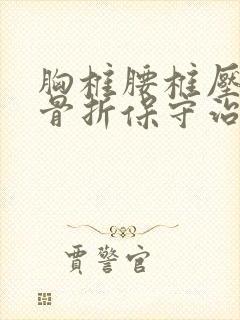 胸椎腰椎壓
骨折保守治
賈警官